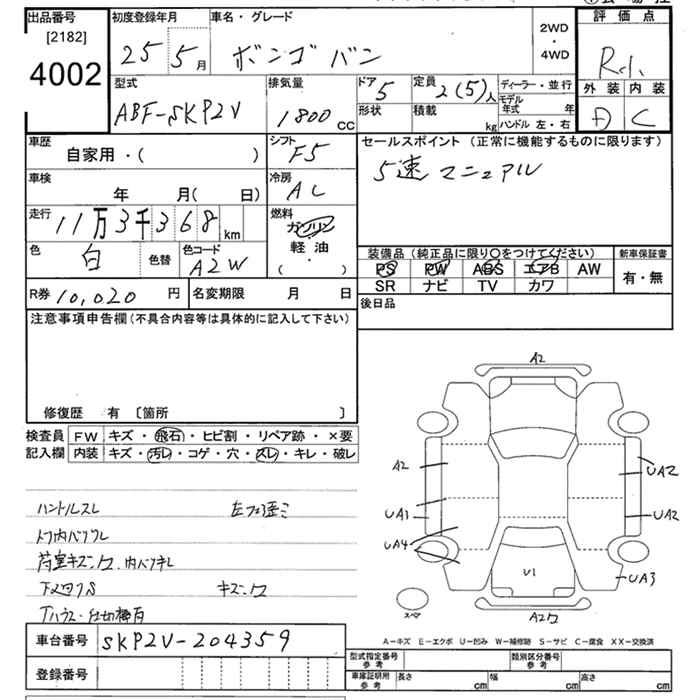 出品番号 初度登録年月 車名・グレード 評価点
[2182]
4002 25 5月 ボンゴ バン 2WD・4WD
型式 排気量 ドア 5 定員 2(5)人 ディーラー・並行 外装 内装
ABF-SKP2V 1800 CC 形状 積載 kg モデル年式 年 D C
ハンドル 左・右
車歴 シフト セールスポイント (正常に機能するものに限ります)
自家用・( ) F5 5速 マニュアル
車検 冷房
年 月( 日) AC
走行 11万3千368km 燃料
ガソリン
軽・油
( )
色 白 色替 色コード A2W
装備品 (純正品に限り○をつけてください) 新車保証書
PS PW ABS エアB AW 有・無
SR ナビ TV カワ
R券 10,020 円 名変期限 月 日 後日品
注意事項申告欄(不具合内容等は具体的に記入して下さい)
修復歴 有 〔箇所 〕
検査員 FW キズ・飛石・ヒビ割・リペア跡・×要
記入欄 内装 キズ・汚レ・コゲ・穴・スレ・キレ・破レ
ハンドルスレ
キズ・凹
A2
A2 UA2
UA1 UA2
UA4
U1 UA3
スペア
A-キズ E-エクボ U-凹み W-補修跡 S-サビ C-腐食 XX-交換済
車台番号 SKP2V-204359
登録番号
型式指定番号 参考 類別区分番号 参考
車庫証明用 参考 長さ cm 幅 cm 高さ cm